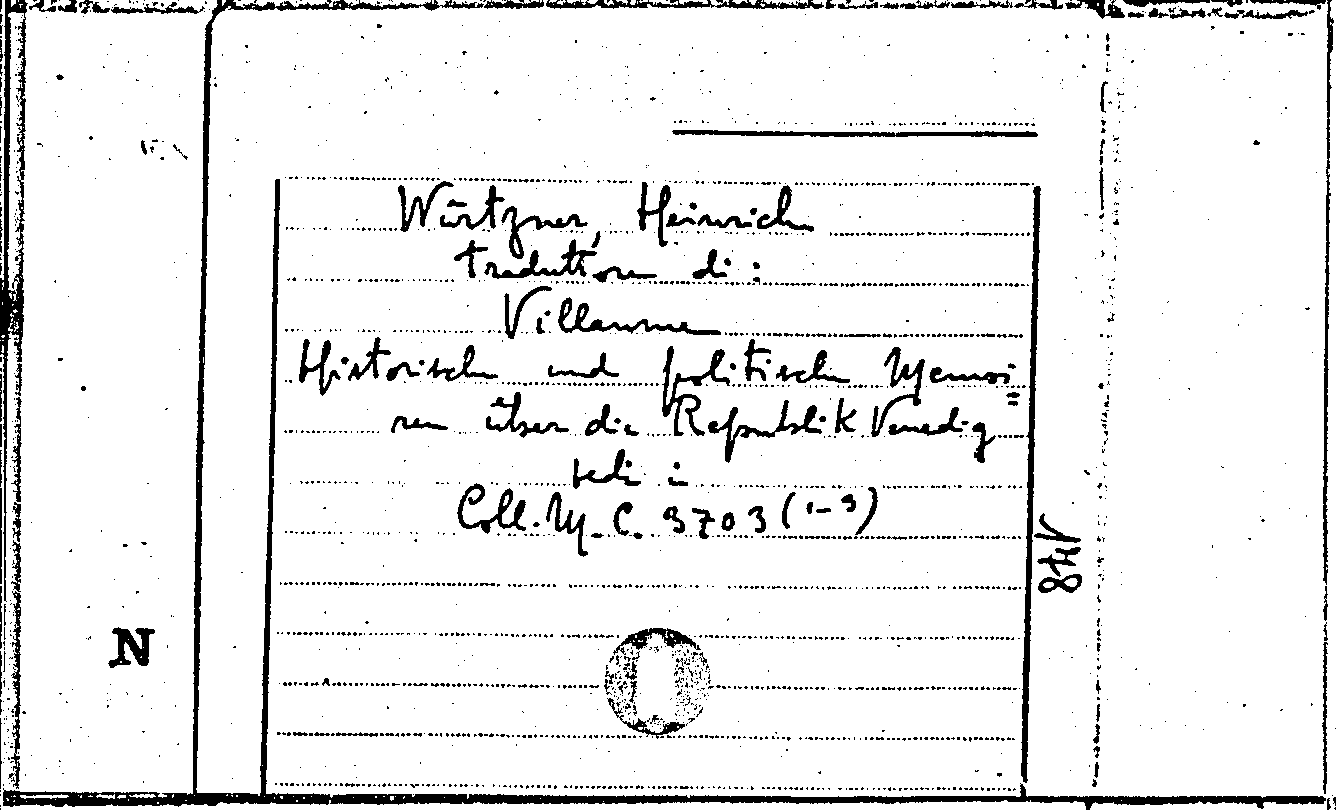 Würtzner, Heinrich
traduttore di:
Villaume
Historische und politische Memoi=
ren über die Republik Venedig
vedi in
Coll. M. C. 3703 (1-3)
N